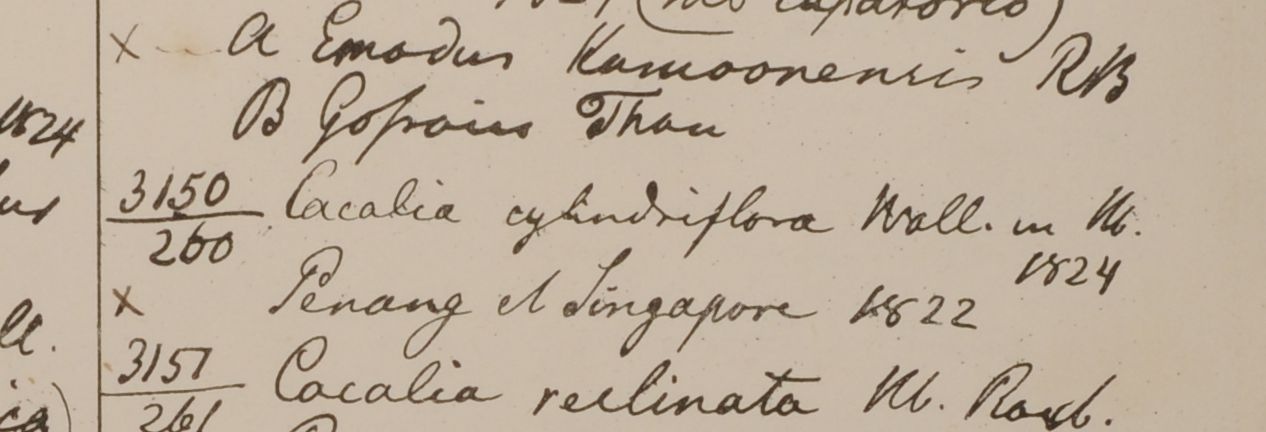 1824
× a Emodus Kamoonensis RB
B Gossain Than
3150 Cacalia cylindriflora Wall. in Hb.
260
1824
× Penang et Singapore 1822
3151 Cacalia reclinata Hb. Roxb.
261